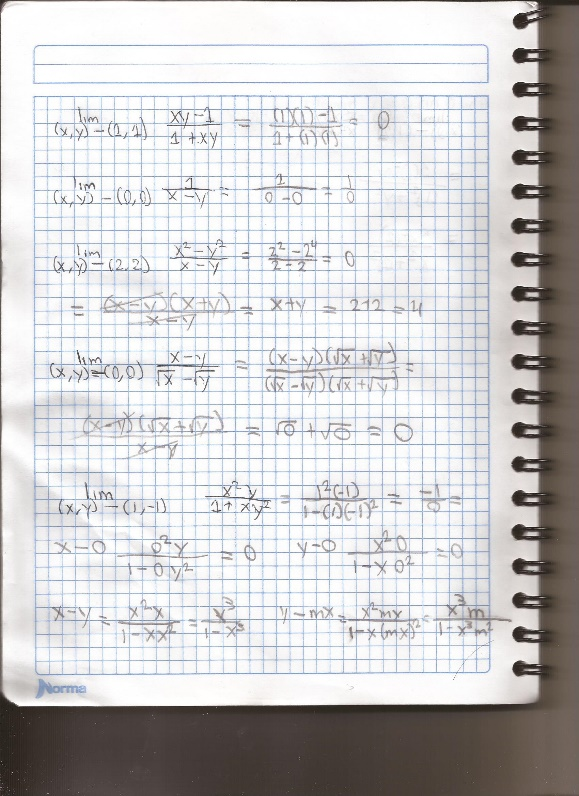 lim (x,y)−(1,1) (xy−1)/(1+xy) = ((1)(1)−1)/(1+(1)(1)) = 0
lim (x,y)−(0,0) 1/(x−y) = 1/(0−0) = 1/0
lim (x,y)−(2,2) (x²−y²)/(x−y) = (2²−2⁴)/(2−2) = 0
= (x−y)(x+y)/(x−y) = x+y = 2+2 = 4
lim (x,y)=(0,0) (x−y)/(√x−√y) = (x−y)(√x+√y)/(√x−√y)(√x+√y) =
(x−y)(√x+√y)/(x−y) = √0+√0 = 0
lim (x,y)−(1,-1) x²y/(1+xy²) = 1²(-1)/(1−(1)(-1)²) = -1/0 =
x−0 0²y/(1−0y²) = 0 y−0 x²0/(1−x0²) = 0
x−y = x²x/(1−xx²) = x³/(1−x³) y−mx = x²mx/(1−x(mx)²) = x³m/(1−x³m²)
Norma